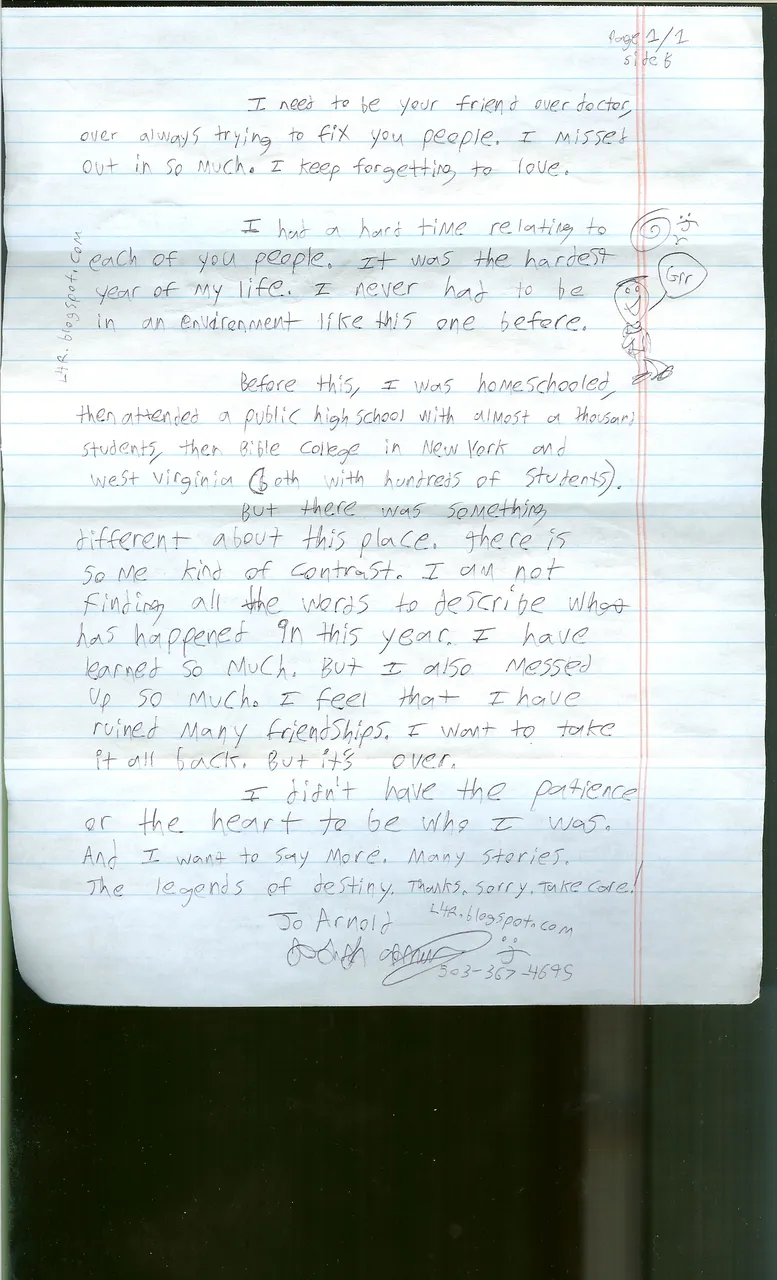 Page 1/1
side B
I need to be your friend over doctor,
over always trying to fix you people. I missed
out in so much. I keep forgetting to love.
I had a hard time relating to
each of you people. It was the hardest
year of my life. I never had to be
in an envirenment like this one before.
Grr
L4R.blogspot.com
Before this, I was homeschooled,
then attended a public high school with almost a thousand
students, then Bible College in New York and
west virginia (both with hundreds of students).
But there was something
different about this place. There is
some kind of contrast. I am not
finding all the words to describe what
has happened in this year. I have
learned so much. But I also messed
up so much. I feel that I have
ruined many friendships. I want to take
it all back. But it's over.
I didn't have the patience
or the heart to be who I was.
And I want to say more. Many stories.
The legends of destiny. Thanks. Sorry. Take care!
Jo Arnold L4R.blogspot.com
503-367-4695